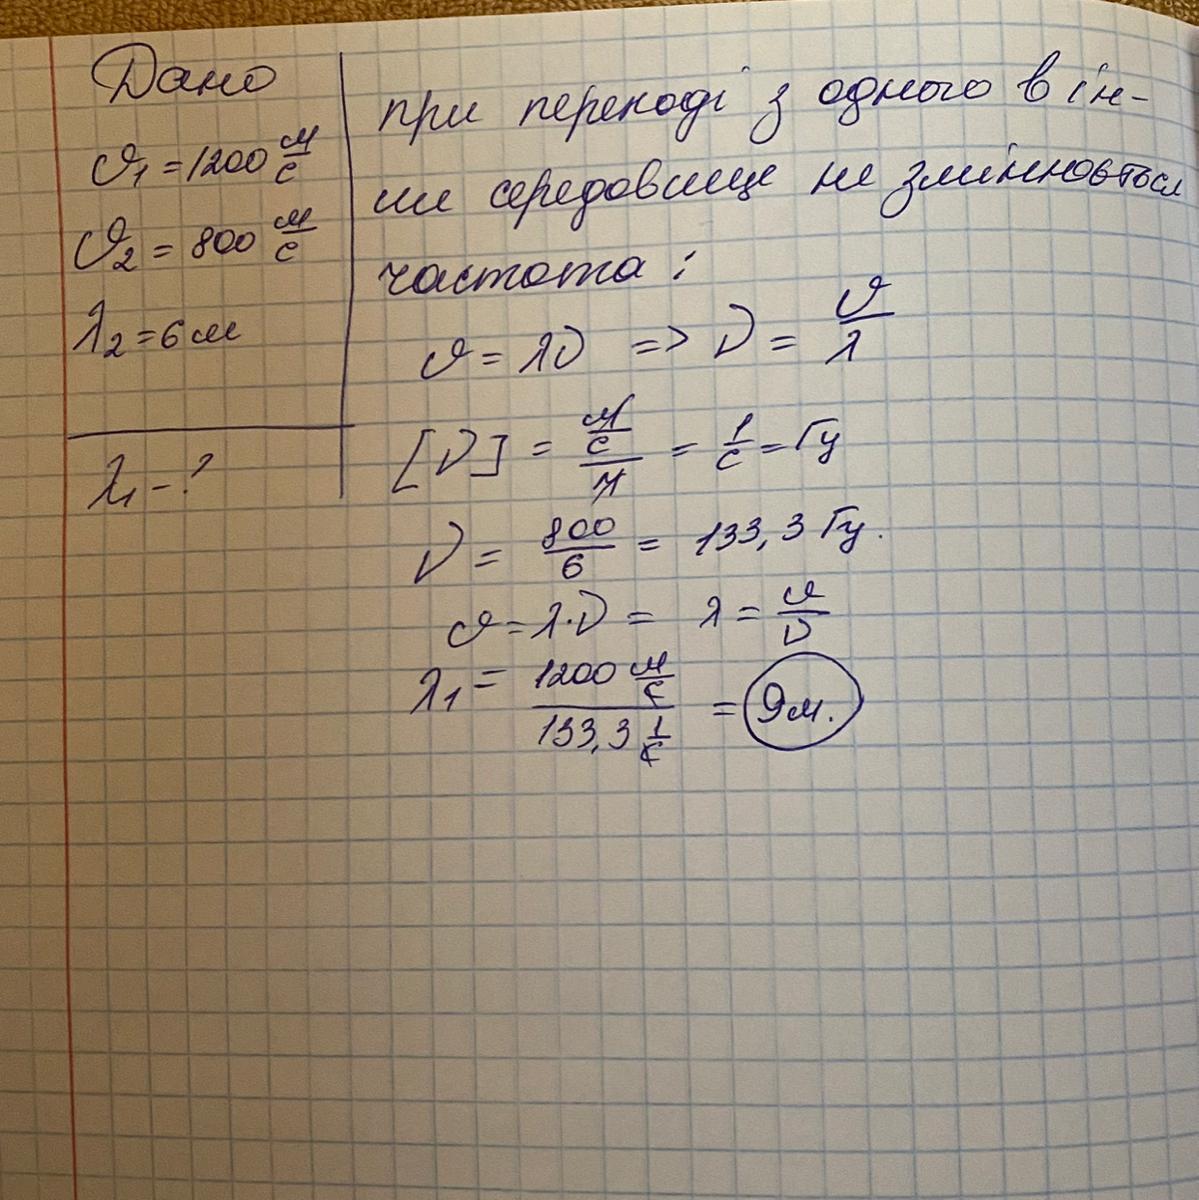 Дано
υ₁ = 1200 м/с
υ₂ = 800 м/с
λ₂ = 6 м
λ₁ - ?
при переході з одного в ін-
ше середовище не змінюється
частота:
υ = λν => ν = υ/λ
[ν] = (м/с)/м = 1/с = Гц
ν = 800/6 = 133,3 Гц.
υ = λ·ν = λ = υ/ν
λ₁ = (1200 м/с)/(133,3 1/с) = 9м.